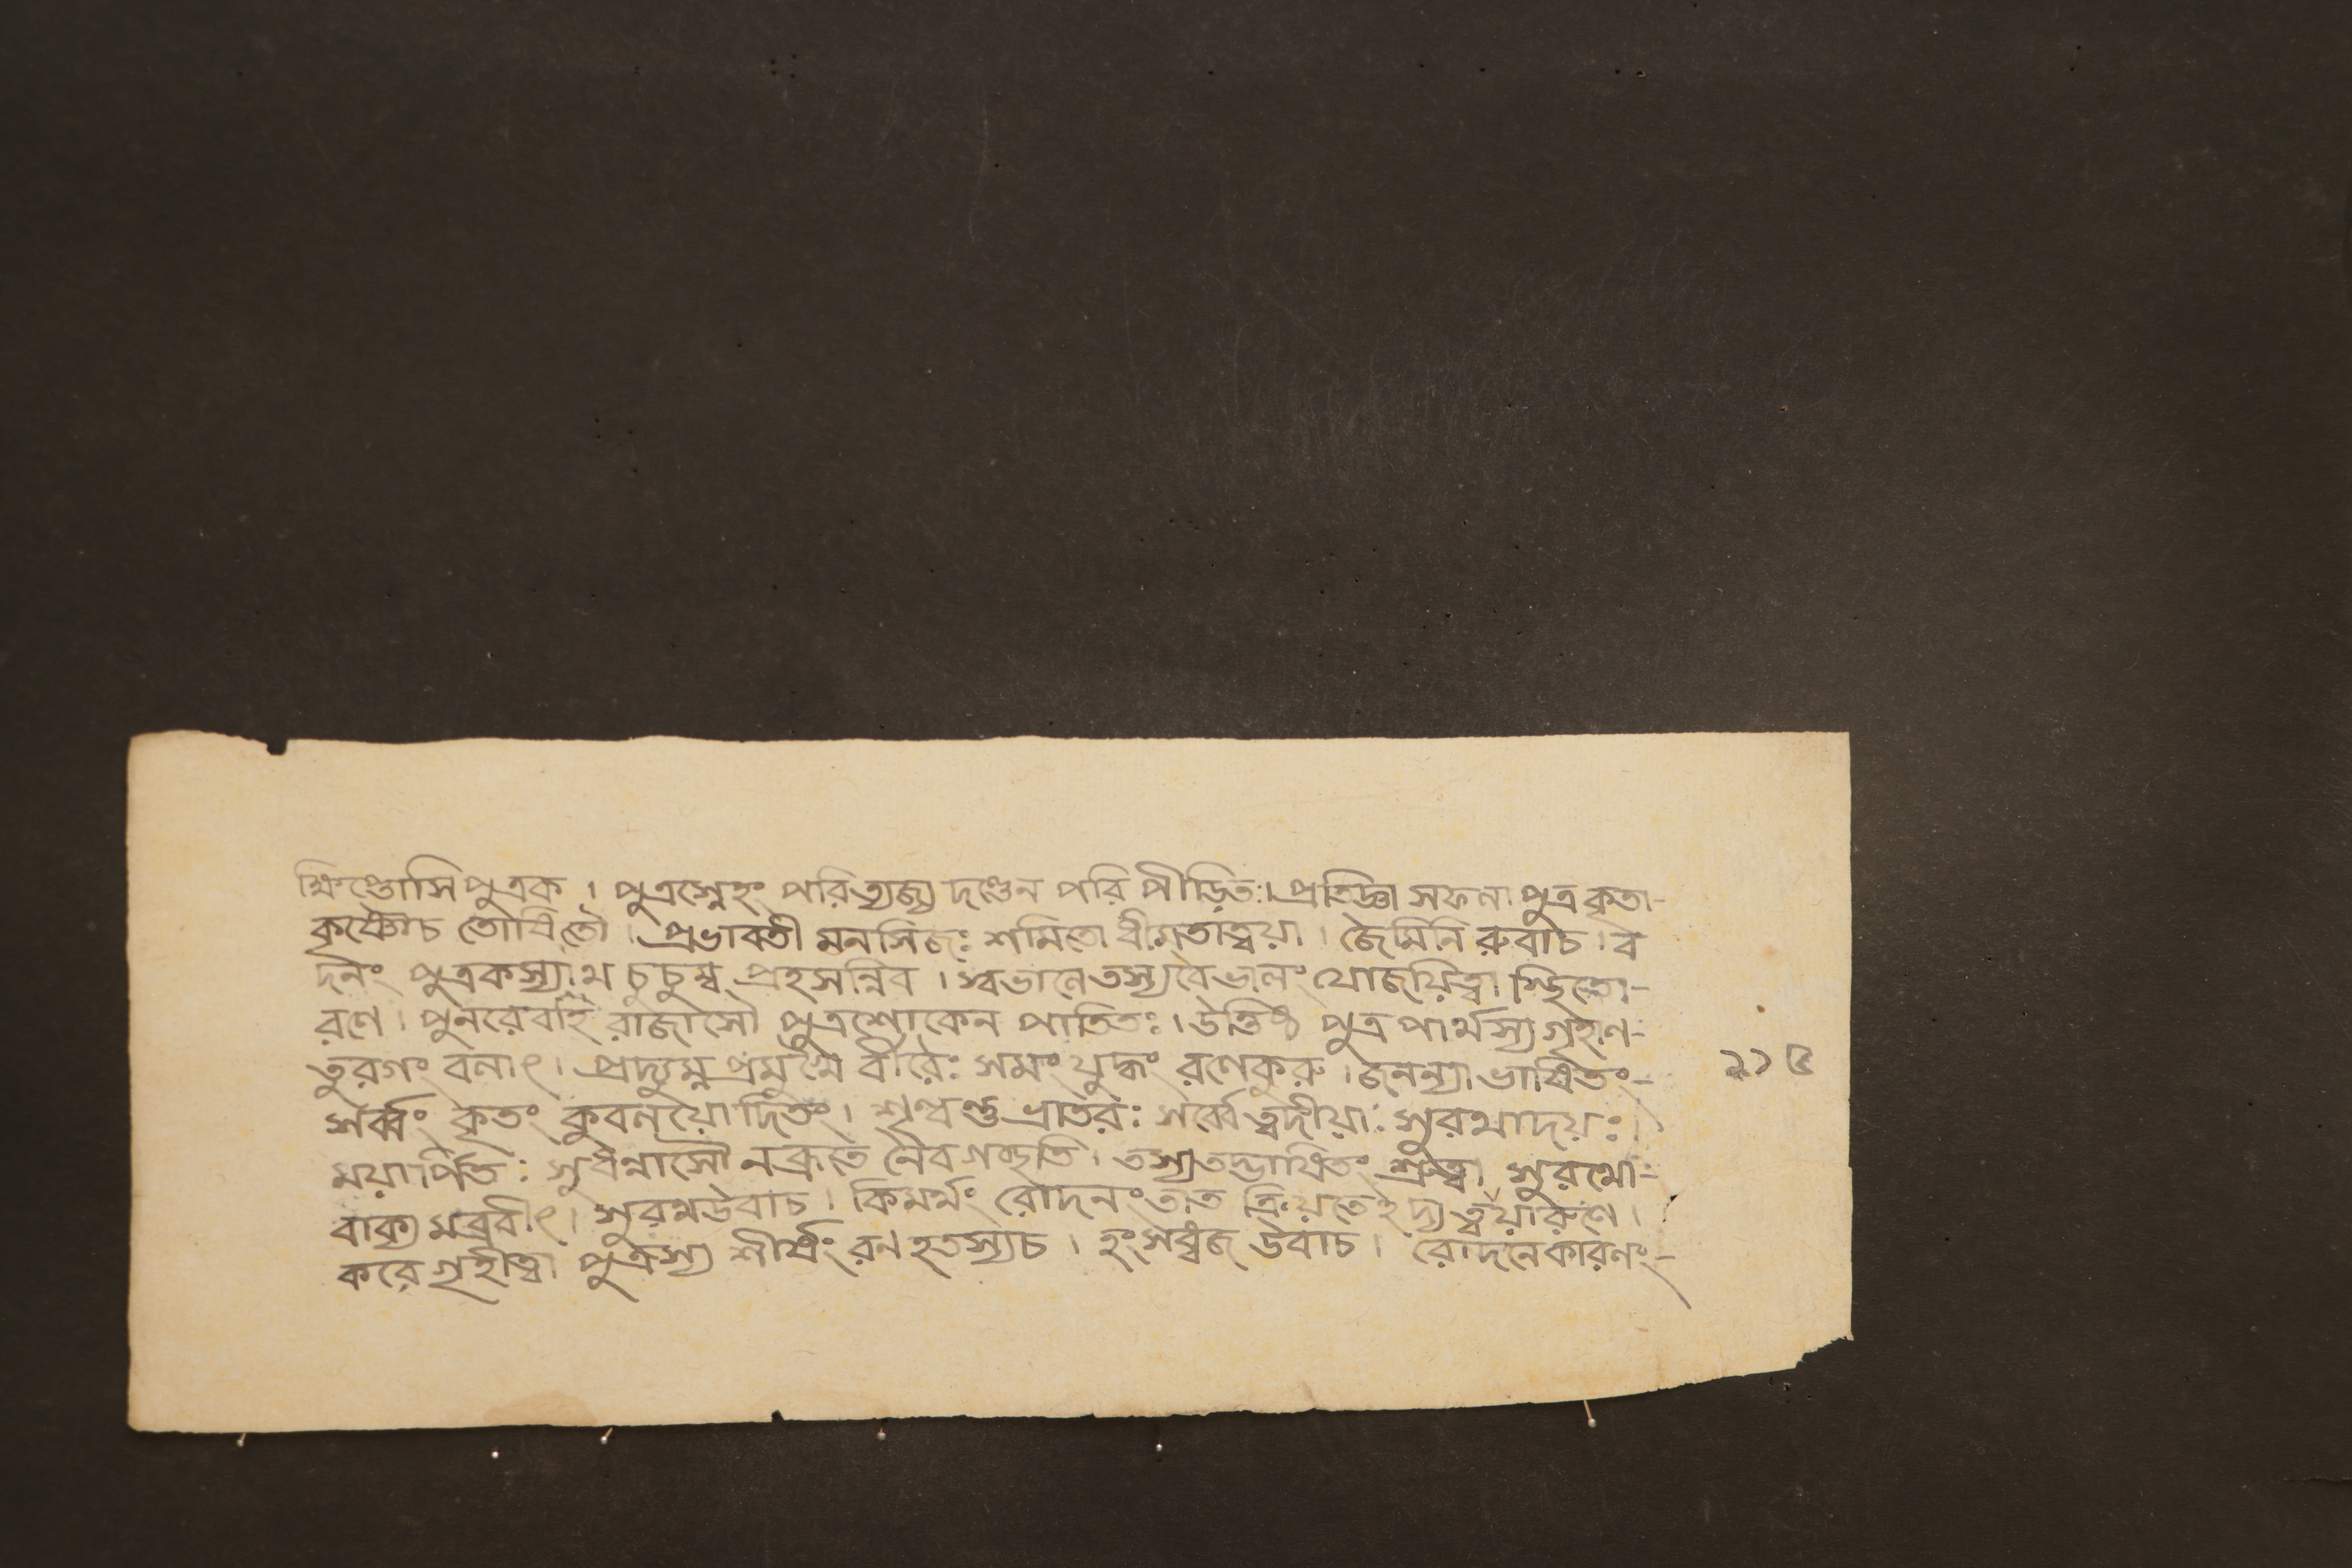 ক্ষিপ্তোসি পুত্রক । পুত্রস্নেহং পরিত্যজ্য দণ্ডেন পরি পীড়িতঃ। প্রতিজ্ঞা সফলা পুত্র কৃতা-
কৃষ্ণৌচ তোষিতৌ । প্রভাবতী মনসিজঃ শমিতো ধীমতাত্বয়া । জৈমিনি রুবাচ । ব
দনং পুত্রকস্যাথ চুচুম্ব প্রহসন্নিব । স্বভালে তস্যবৈভালং যোজয়িত্বা স্থিতো-
রণে । পুনরেবাহ রাজাসৌ পুত্রশোকেন পাতিতঃ । উত্তিষ্ঠ পুত্র পার্থস্য গৃহাণ-
তুরগং বলাৎ । প্রদ্যুম্ন প্রমুখৈ র্বীরৈঃ সমং যুদ্ধং রণেকুরু । জনন্যা ভাষিতং-
সর্ব্বং কৃতং কুবলয়োদিতং । শৃণ্বন্তু ভ্রাতরঃ সর্ব্বে ত্বদীয়াঃ সুরথাদয়ঃ।
ময়ার্পিতঃ সুধন্বাসৌ নব্রূতে নৈবগচ্ছতি । তস্যতদ্ভাষিতং শ্রুত্বা সুরথো-
বাক্য মব্রবীৎ । সুরথউবাচ । কিমর্থং রোদনংতাত ক্রিয়তেহদ্য ত্বয়ারণে ।
করে গৃহীত্বা পুত্রস্য শীর্ষং রণ হতস্যচ । হংসধ্বজ উবাচ । রোদনেকারণং-
১১৫